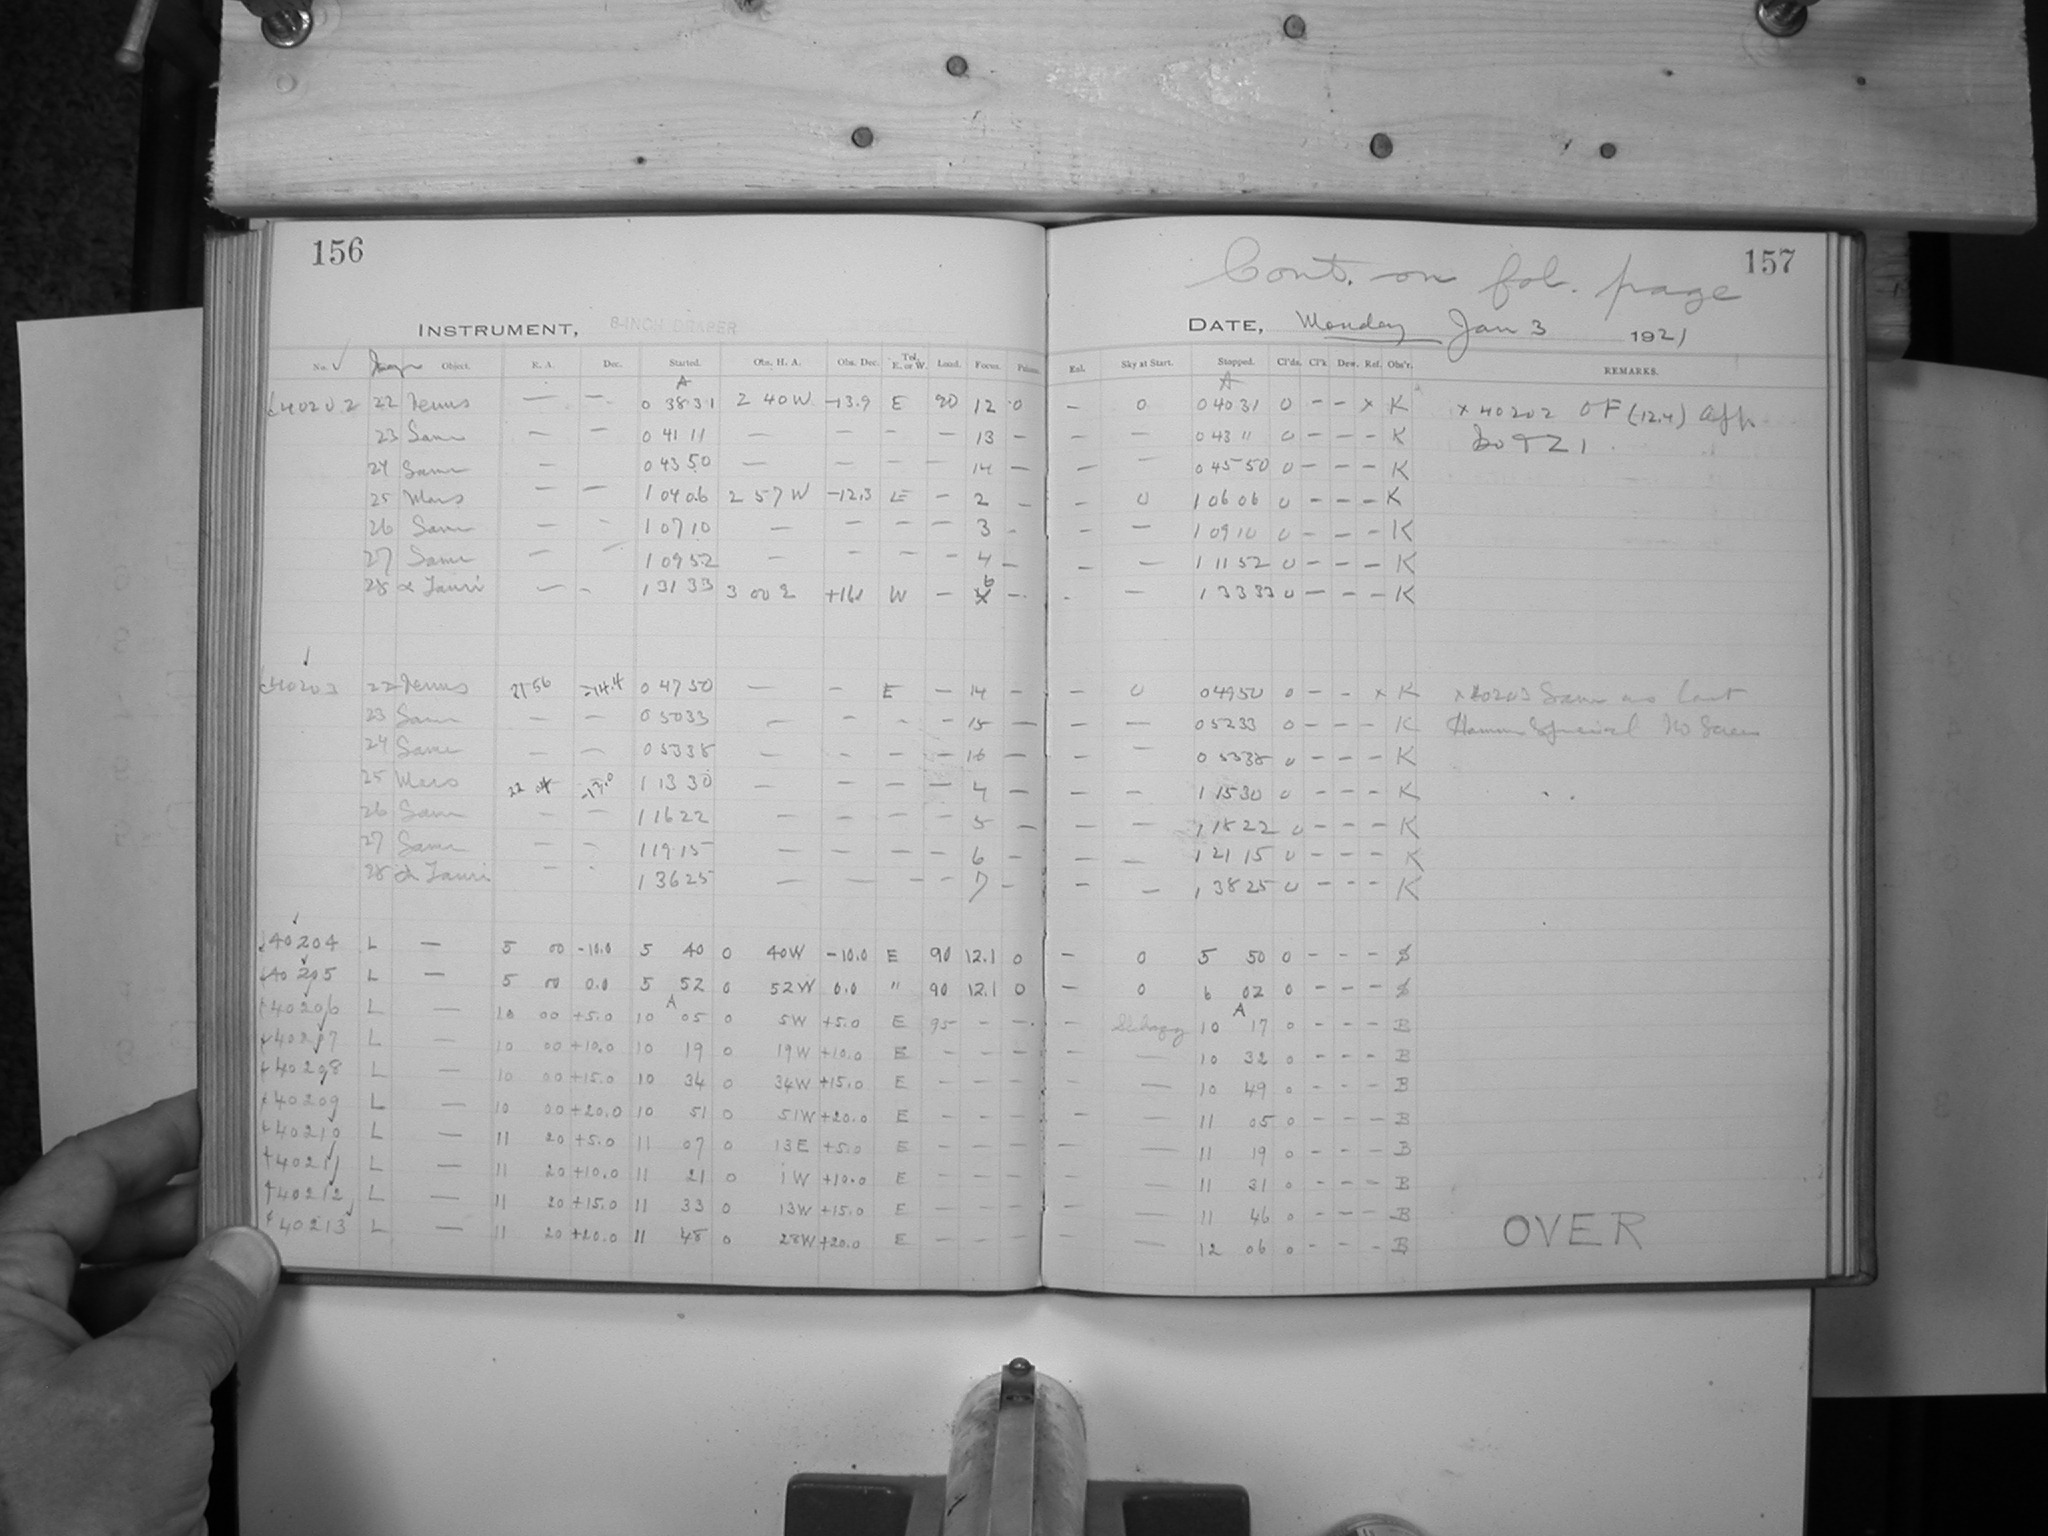 156
157
Cont. on fol. page
INSTRUMENT, 8-INCH DRAPER
DATE, Monday Jan 3 1921
No. Object. R. A. Dec. Started. Obs. H. A. Obs. Dec. Tel. E. or W. Load. Focus. Sky at Start. Stopped. Cl'ds. Cl'k Dew. Ref. Obs'r. REMARKS.
A A
40202 22 Venus — — 0 38 31 2 40 W -13.9 E 90 12 0 — 0 0 40 31 0 — — x K x 40202
23 Same — — 0 41 11 — — — — 13 — — — 0 43 11 0 — — — K
24 Same — 0 43 50 — — — — 14 — — — 0 45 50 0 — — — K
25 Mars — — 1 04 06 2 57 W -12.3 E — 2 — — 0 1 06 06 0 — — — K
26 Same — — 1 07 10 — — — — 3 — — — 1 09 10 0 — — — K
27 Same — — 1 09 52 — — — — 4 — — — 1 11 52 0 — — — K
28 α Tauri — — 1 31 33 3 00 E W — 6 — — — 1 33 33 0 — — — K
40203 22 Venus 21 56 -14.4 0 47 50 — — E — 14 — — 0 0 49 50 0 — — x K x 40203 Same as last
23 Same — — 0 50 33 — — — — 15 — — — 0 52 33 0 — — — K
24 Same — — 0 53 38 — — — — 16 — — — 0 55 38 0 — — — K
25 Mars 22 04 -13.0 1 13 30 — — — — 4 — — — 1 15 30 0 — — — K
26 Same — — 1 16 22 — — — — 5 — — — 1 18 22 0 — — — K
27 Same — — 1 19 15 — — — — 6 — — — 1 21 15 0 — — — K
28 α Tauri — — 1 36 25 — — — — 7 — — — 1 38 25 0 — — — K
40204 L — 5 00 -10.0 5 40 0 40W -10.0 E 90 12.1 0 — 0 5 50 0 — — —
40205 L — 5 00 0.0 5 52 0 52W 0.0 " 90 12.1 0 — 0 6 02 0 — — —
A A
40206 L — 10 00 +5.0 10 05 0 5W +5.0 E 95 — — — 10 17 0 — — — B
40207 L — 10 00 +10.0 10 19 0 19W +10.0 E — — — — — 10 32 0 — — — B
40208 L — 10 00 +15.0 10 34 0 34W +15.0 E — — — — — 10 49 0 — — — B
40209 L — 10 00 +20.0 10 51 0 51W +20.0 E — — — — — 11 05 0 — — — B
40210 L — 11 20 +5.0 11 07 0 13E +5.0 E — — — — — 11 19 0 — — — B
40211 L — 11 20 +10.0 11 21 0 1W +10.0 E — — — — — 11 31 0 — — — B
40212 L — 11 20 +15.0 11 33 0 13W +15.0 E — — — — — 11 46 0 — — — B
40213 L — 11 20 +20.0 11 48 0 28W +20.0 E — — — — — 12 06 0 — — — B
OVER